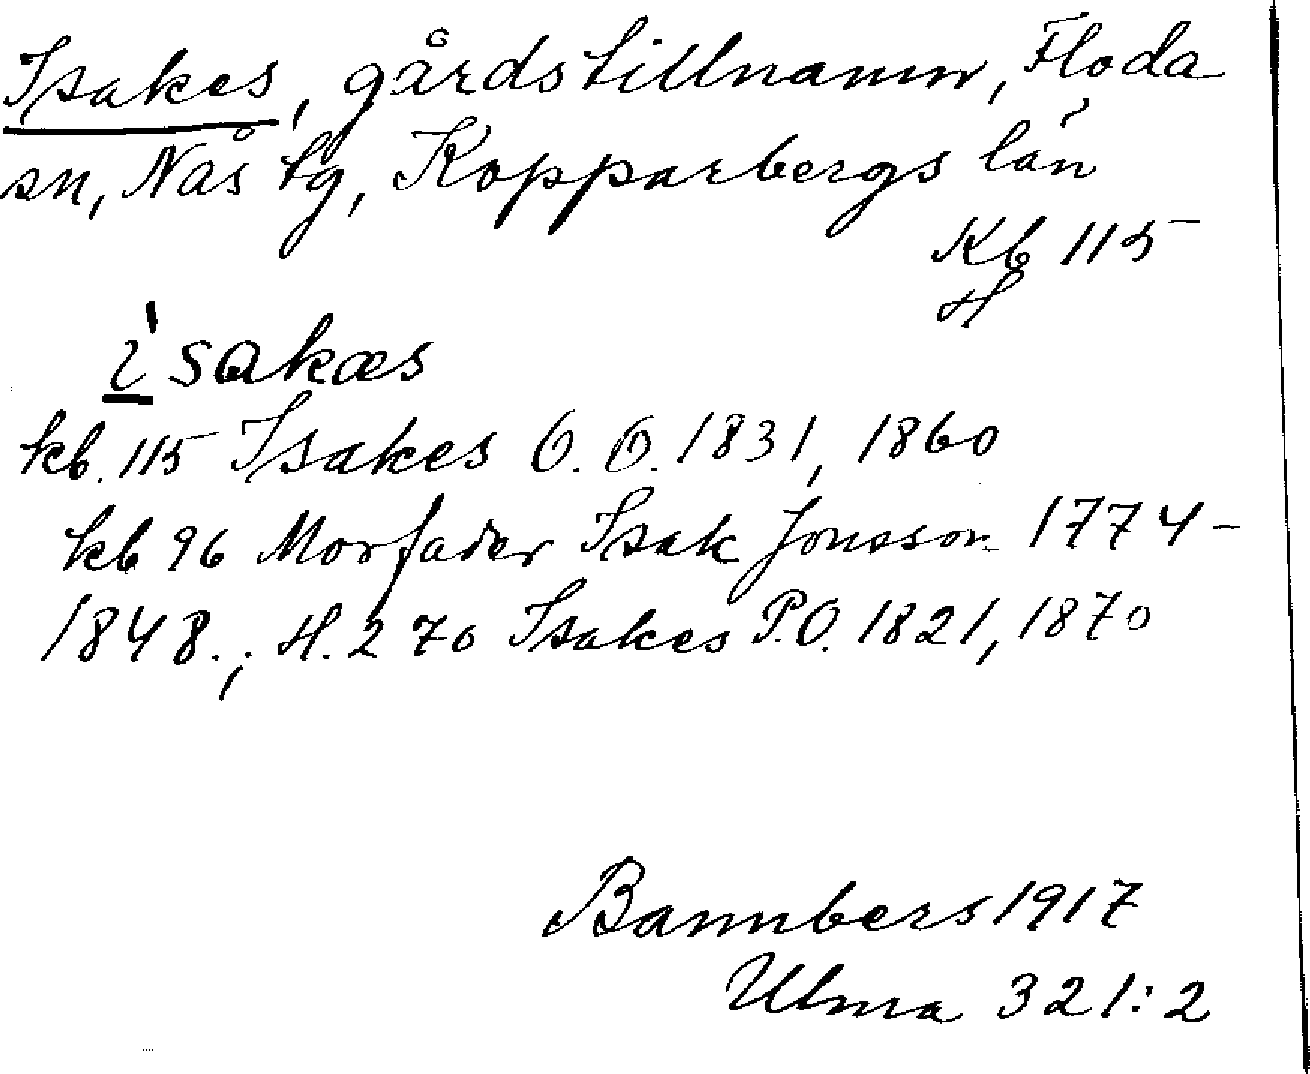 Isakes, gårdstillnamn, Floda
sn, Nås tg, Kopparbergs län
Kb 115
H
i̲ˈsakæs
kb. 115 Isakes O. O. 1831, 1860
kb 96 Morfader Isak Jonsson 1774-
1848.; H. 270 Isakes P.O. 1821, 1870
Bannbers 1917
Ulma 321:2